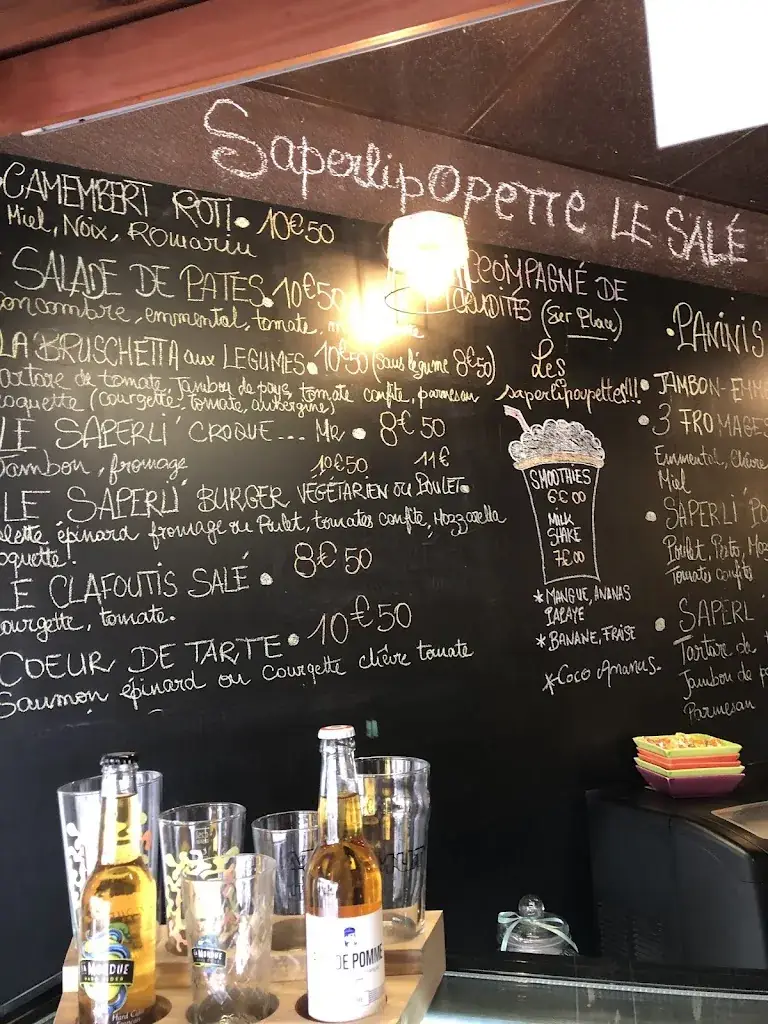 Saperlipopette LE SALÉ
CAMEMBERT ROTI. 10€50
Miel, Noix, Romarin
SALADE DE PATES. 10€50
concombre, emmental, tomate,
LA BRUSCHETTA aux LEGUMES. 10€50 (sans légume 8€50)
Tartare de tomate, Jambon de pays, tomate confite, parmesan
roquette (courgette, tomate, aubergine)
LE SAPERLI' CROQUE... Mr. 8€50
Jambon, fromage
10€50 11€
LE SAPERLI' BURGER VÉGÉTARIEN ou POULET.
épinard fromage ou Poulet, tomates confite, Mozzarella
roquette.
LE CLAFOUTIS SALÉ. 8€50
courgette, tomate.
COEUR DE TARTE. 10€50
Saumon épinard ou courgette chèvre tomate
ACCOMPAGNÉ DE
CRUDITÉS (Sur Place)
Les
saperlipoupettes!!!
SMOOTHIES
6€00
MILK
SHAKE
7€00
*MANGUE, ANANAS
PAPAYE
*BANANE, FRAISE
*Coco Ananas.
.PANINIS
.JAMBON-EMME
.3 FROMAGES
Emmental, chèvre
Miel
.SAPERLI' PO
Poulet, Pesto, Moz
Tomates confites
.SAPERL'
Tartare de t
Jambon de pa
Parmesan
LA MORDUE
HARD CIDER
Hard Ci
Français
LA MORDUE
DE POMME